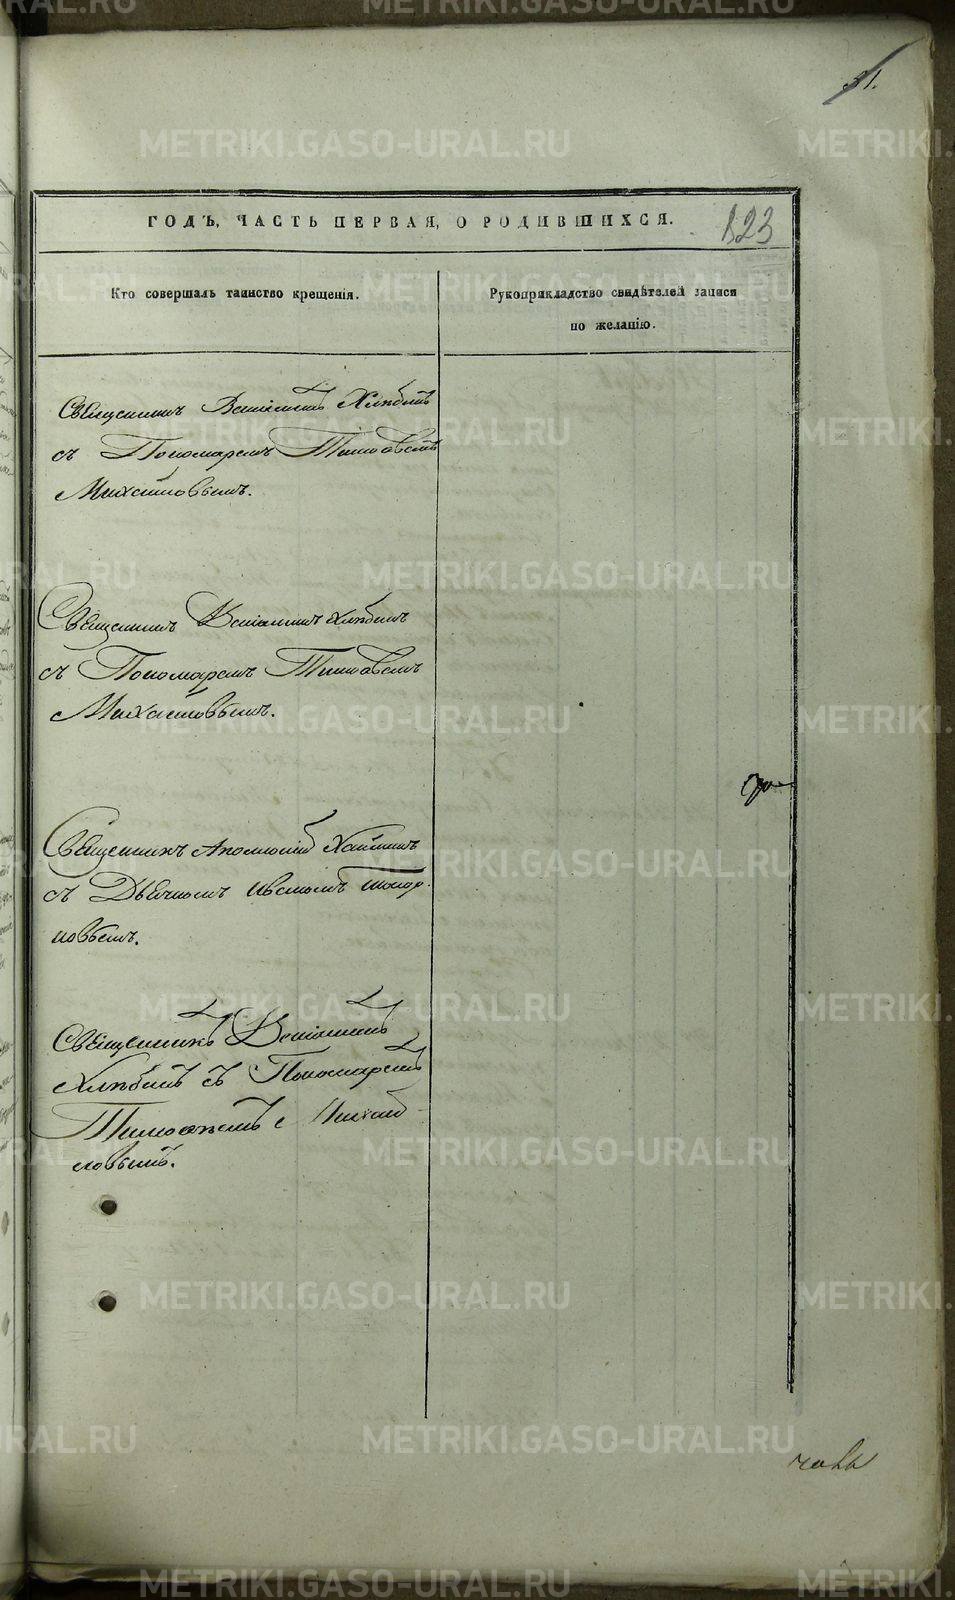 31.
ГОДЪ, ЧАСТЬ ПЕРВАЯ, О РОДИВШИХСЯ.
123
Кто совершалъ таинство крещенія.
Рукоприкладство свидѣтелей записи
по желанію.
Священникъ Веніаминъ Хлѣбинъ
съ Пономаремъ Тимоѳеемъ
Михайловымъ.
Священникъ Веніаминъ Хлѣбинъ
съ Пономаремъ Тимоѳеемъ
Михайловымъ.
Священникъ Аполлоній
съ Дьячкомъ Иваномъ Топор-
ковымъ.
Священникъ Веніаминъ
Хлѣбинъ съ Пономаремъ
Тимоѳеемъ Михай-
ловымъ.
METRIKI.GASO-URAL.RU